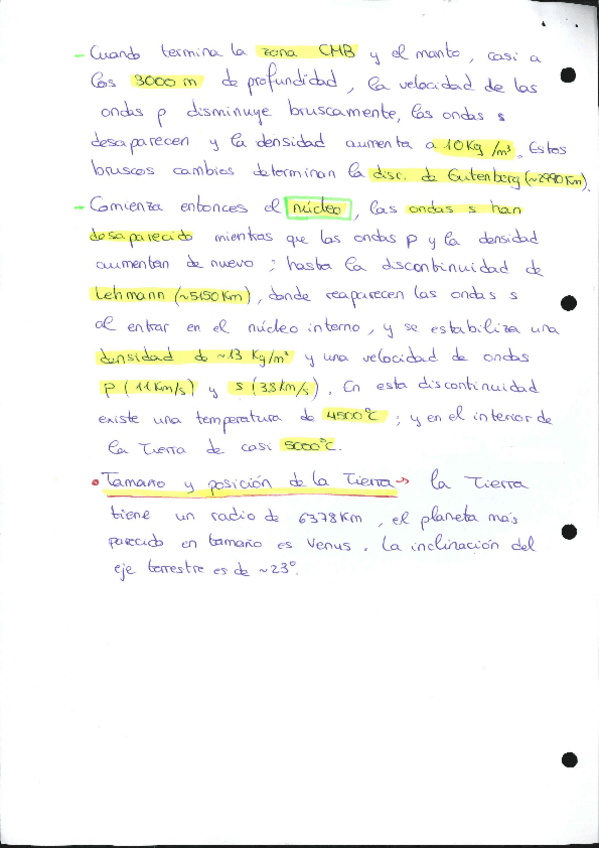 - Cuando termina la zona CMB y el manto, casi a
los 3000 m de profundidad, la velocidad de las
ondas p disminuye bruscamente, las ondas s
desaparecen y la densidad aumenta a 10 Kg/m³. Estos
bruscos cambios determinan la disc. de Gutenberg (~2990 Km).
- Comienza entonces el núcleo, las ondas s han
desaparecido mientras que las ondas p y la densidad
aumentan de nuevo; hasta la discontinuidad de
Lehmann (~5150 Km), donde reaparecen las ondas s
al entrar en el núcleo interno, y se estabiliza una
densidad de ~13 Kg/m³ y una velocidad de ondas
p (11 Km/s) y s (3,8 km/s). En esta discontinuidad
existe una temperatura de 4500°C; y en el interior de
la Tierra de casi 5000°C.
• Tamaño y posición de la Tierra → la Tierra
tiene un radio de 6378 Km, el planeta más
parecido en tamaño es Venus. La inclinación del
eje terrestre es de ~23°.